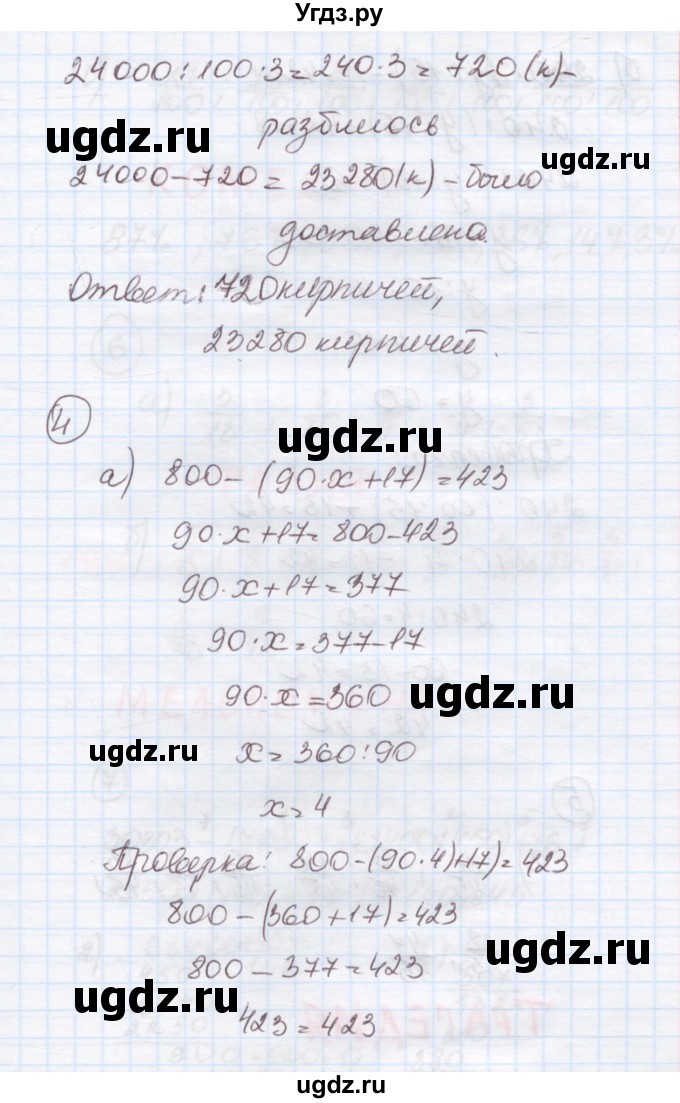 Угдз.ру
24000:100·3=240·3=720(к)-
разбилось
24000-720=23280(к)-было
доставлено.
Ответ: 720 кирпичей,
23280 кирпичей.
4
а) 800-(90·x+17)=423
90·x+17=800-423
90·x+17=377
90·x=377-17
90·x=360
x=360:90
x=4
Проверка: 800-(90·4)+17)=423
800-(360+17)=423
800-377=423
423=423
ugdz.ru
ugdz.ru
ugdz.ru
ugdz.ru
ugdz.ru
ugdz.ru
ugdz.ru
ugdz.ru